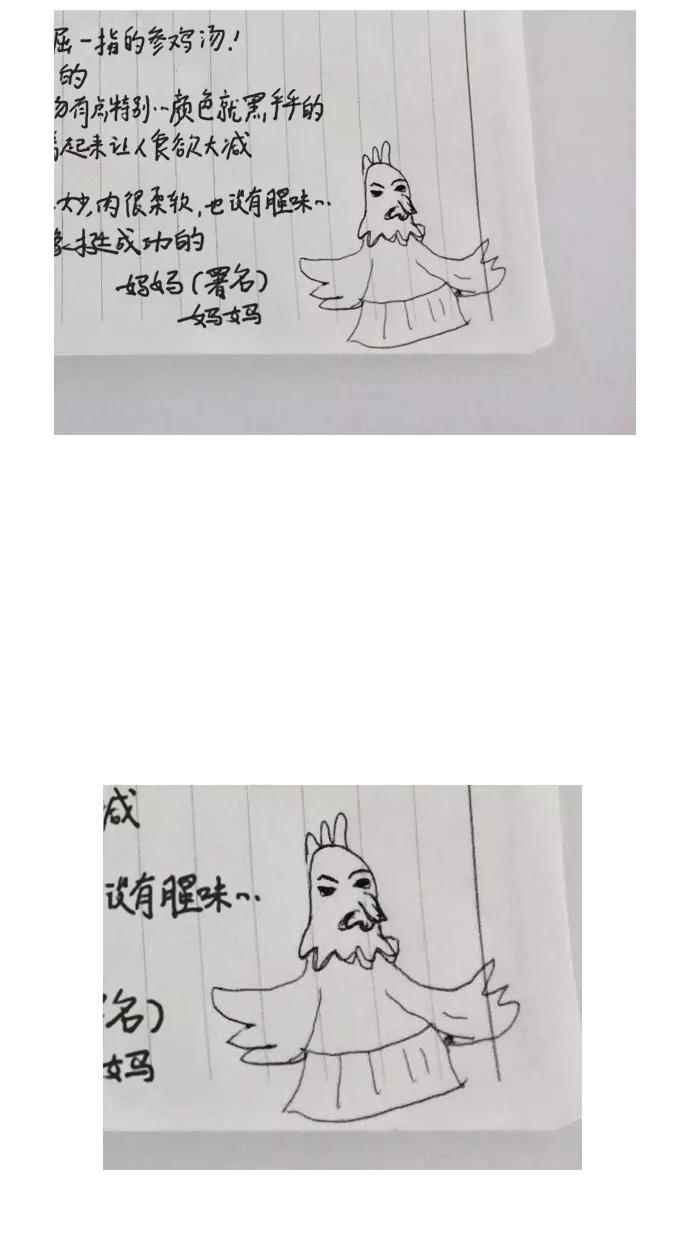 屈一指的参鸡汤!
的
物有点特别…颜色就黑乎乎的
看起来让人食欲大减
大妙,肉很柔软,也没有腥味…
像挺成功的
妈妈(署名)
妈妈
减
没有腥味…
名)
妈